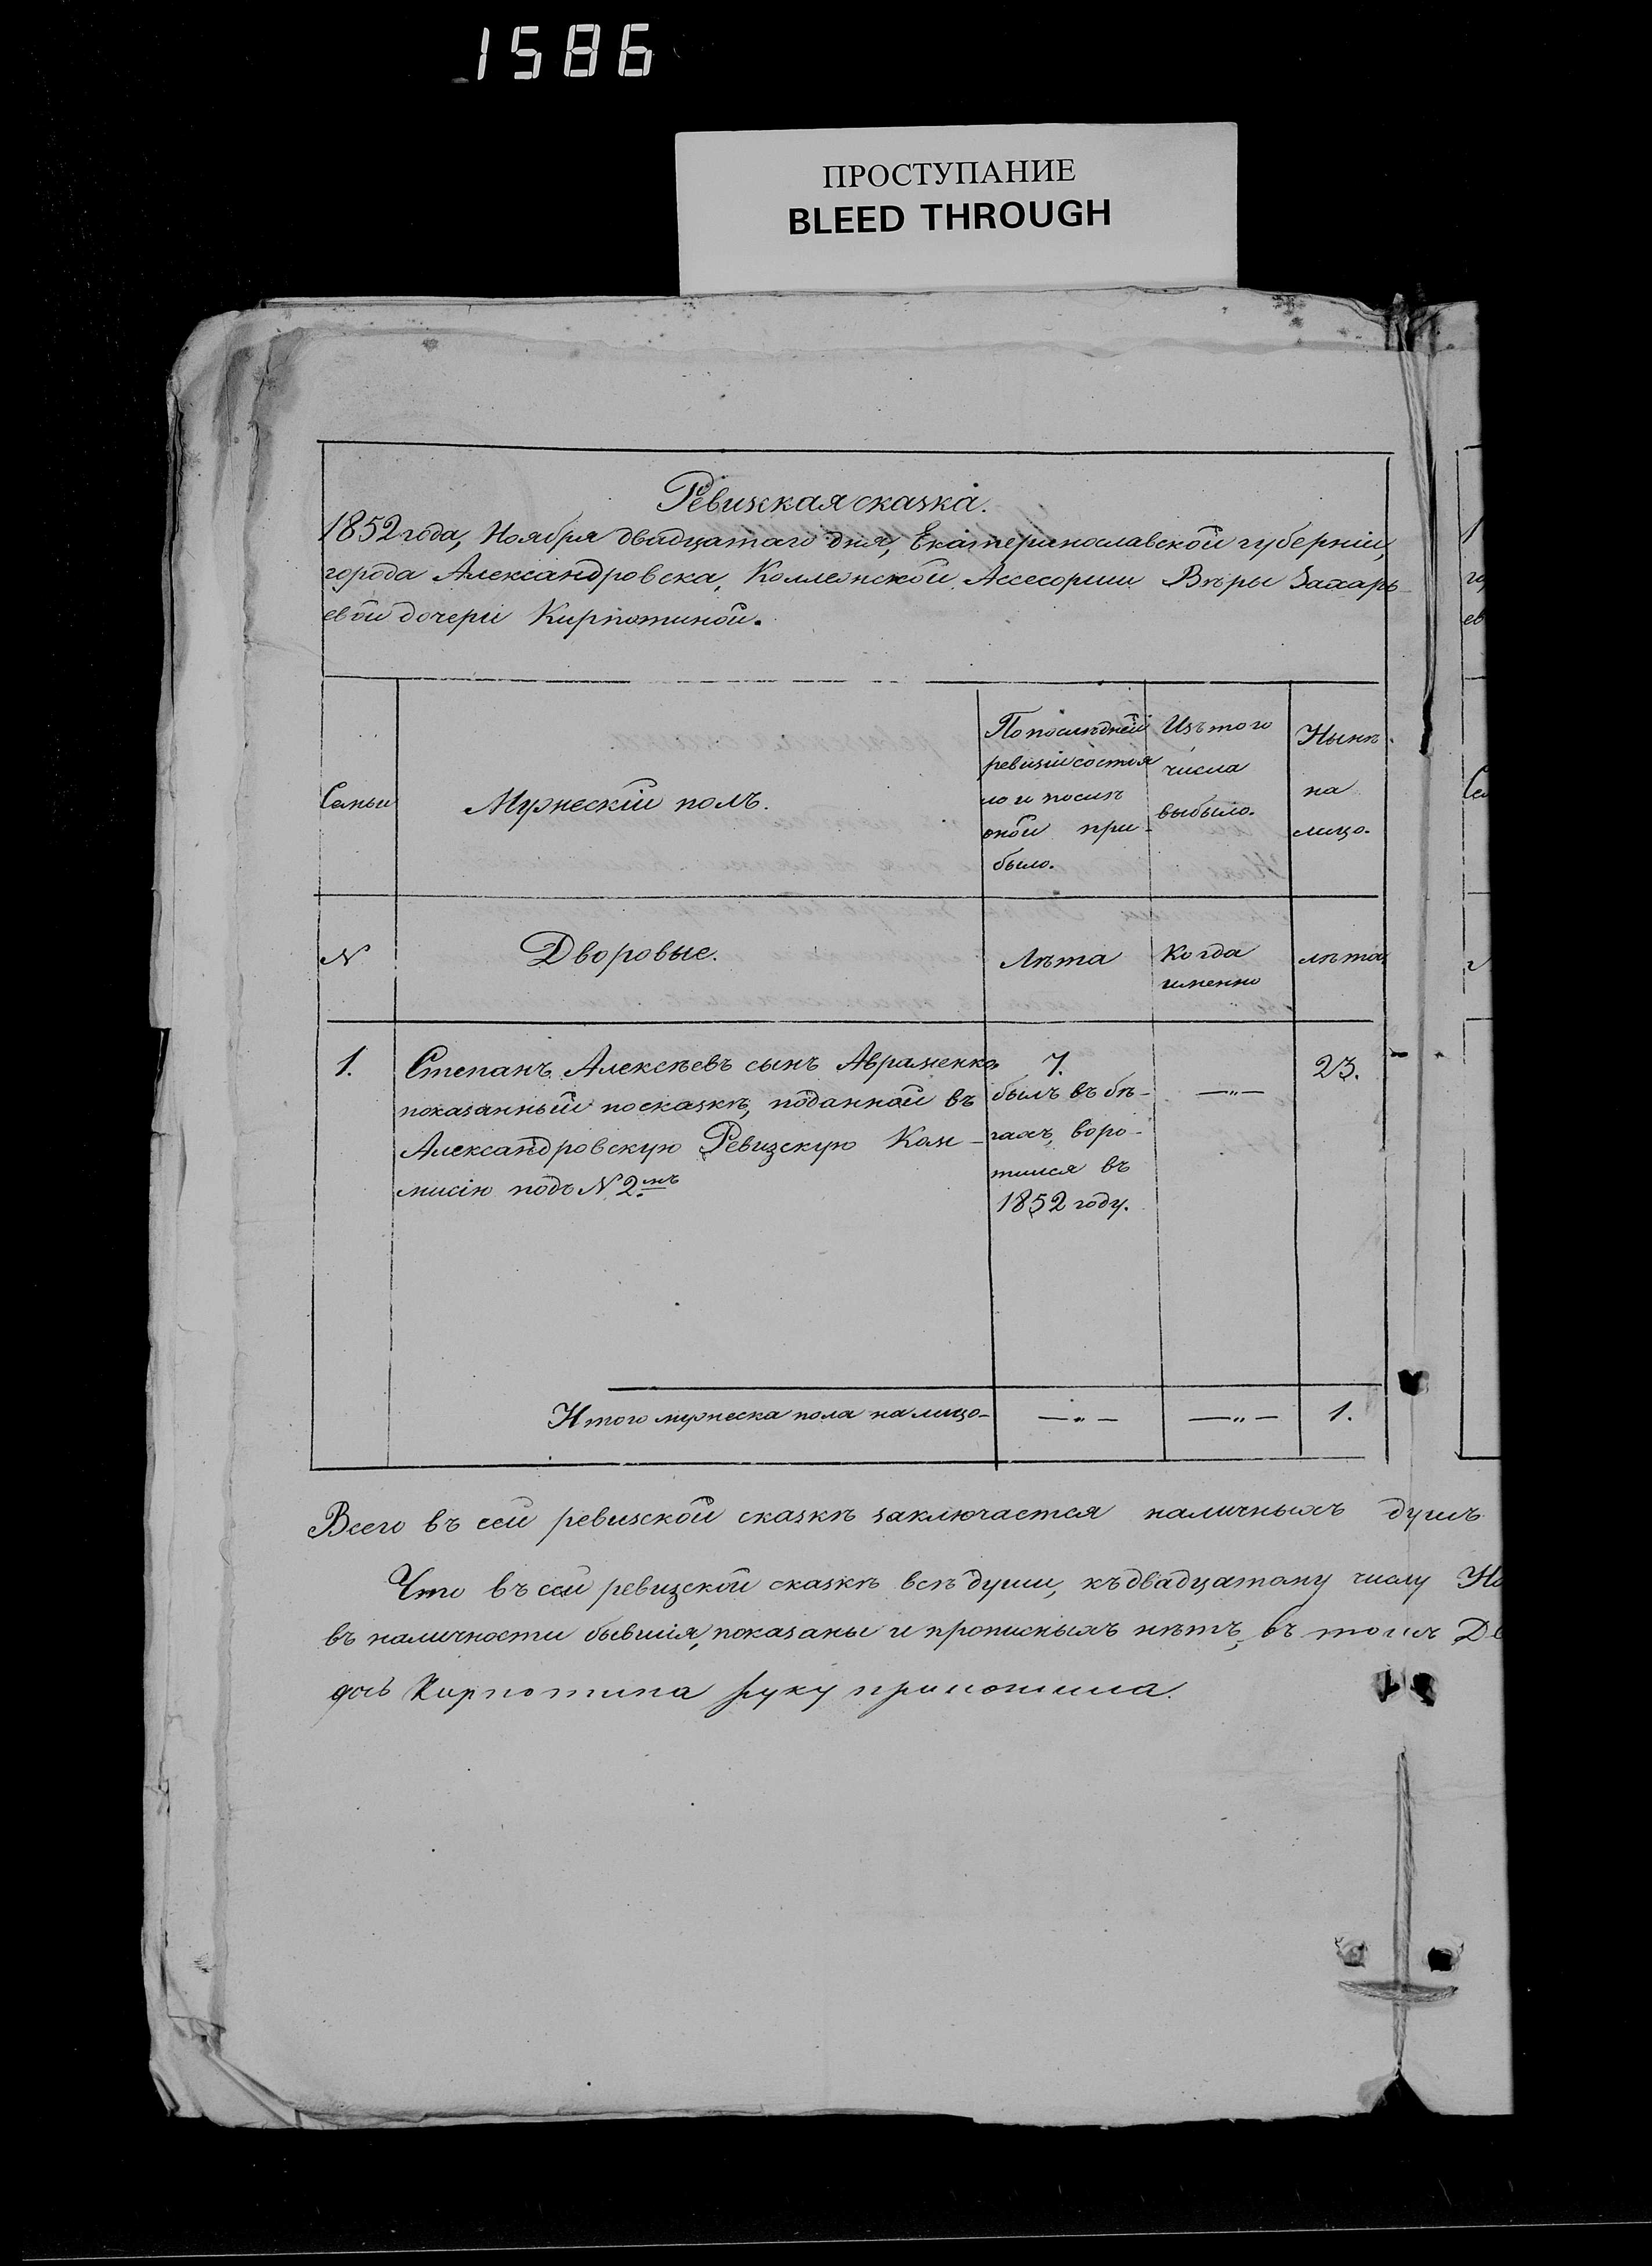 1586
ПРОСТУПАНИЕ
BLEED THROUGH
Ревизская сказка.
1852 года, Ноября двадцатаго дня, Екатеринославской губерніи,
города Александровска, Коллежской Ассесорши Вѣры Захарь
евой дочери Кирпотиной.
Семьи
Мужескій полъ.
По послѣдней
ревизіи состоя
ло и послѣ
оной при-
было.
Изъ того
числа
выбыло.
Нынѣ
на
лицо.
N
Дворовые.
Лѣта
Когда
именно
лѣта
1.
Степанъ Алексѣевъ сынъ Авраменко
показанный по сказкѣ, поданной въ
Александровскую Ревизскую Ком-
мисію подъ N 2.мъ
7.
былъ въ бѣ-
гахъ, воро-
тился въ
1852 году.
—„—
23.
Итого мужеска пола на лицо-
—„—
—„—
1.
Всего въ сей ревизской сказкѣ заключается наличныхъ душъ
Что въ сей ревизской сказкѣ всѣ души, къ двадцатому числу Но
въ наличности бывшія, показаны и прописныхъ нѣтъ, въ томъ
дочь Кирпотина руку приложила.